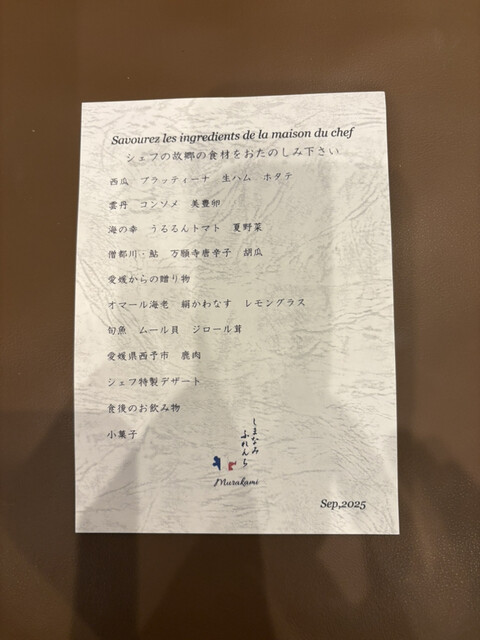 Savourez les ingredients de la maison du chef
シェフの故郷の食材をおたのしみ下さい
西瓜 ブラッティーナ 生ハム ホタテ
雲丹 コンソメ 美豊卵
海の幸 うるるんトマト 夏野菜
僧都川・鮎 万願寺唐辛子 胡瓜
愛媛からの贈り物
オマール海老 絹かわなす レモングラス
旬魚 ムール貝 ジロール茸
愛媛県西予市 鹿肉
シェフ特製デザート
食後のお飲み物
小菓子
しまなみ
ふれんち
Murakami
Sep,2025